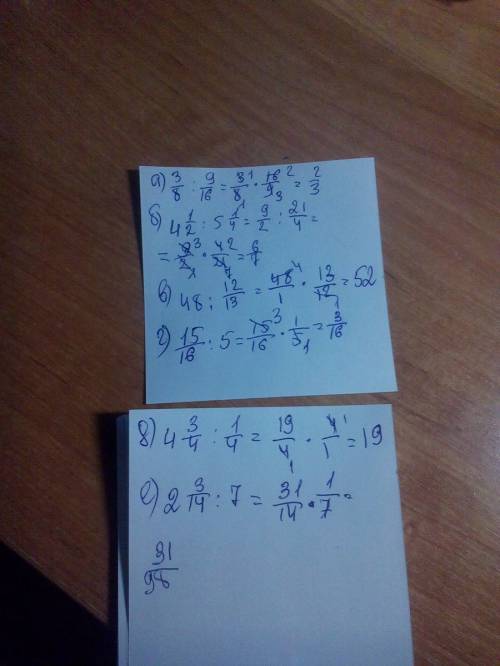 а) 3/8 : 9/16 = 3/8 1 · 16/9 2 3 = 2/3
б) 4 1/2 : 5 1/4 = 9/2 : 21/4 =
= 9/2 3 1 · 4/21 2 7 = 6/7
в) 48 : 12/13 = 48/1 4 · 13/12 1 = 52
г) 15/16 : 5 = 15/16 3 · 1/5 1 = 3/16
д) 4 3/4 : 1/4 = 19/4 1 · 4/1 1 = 19
е) 2 3/14 : 7 = 31/14 · 1/7 =
31/98